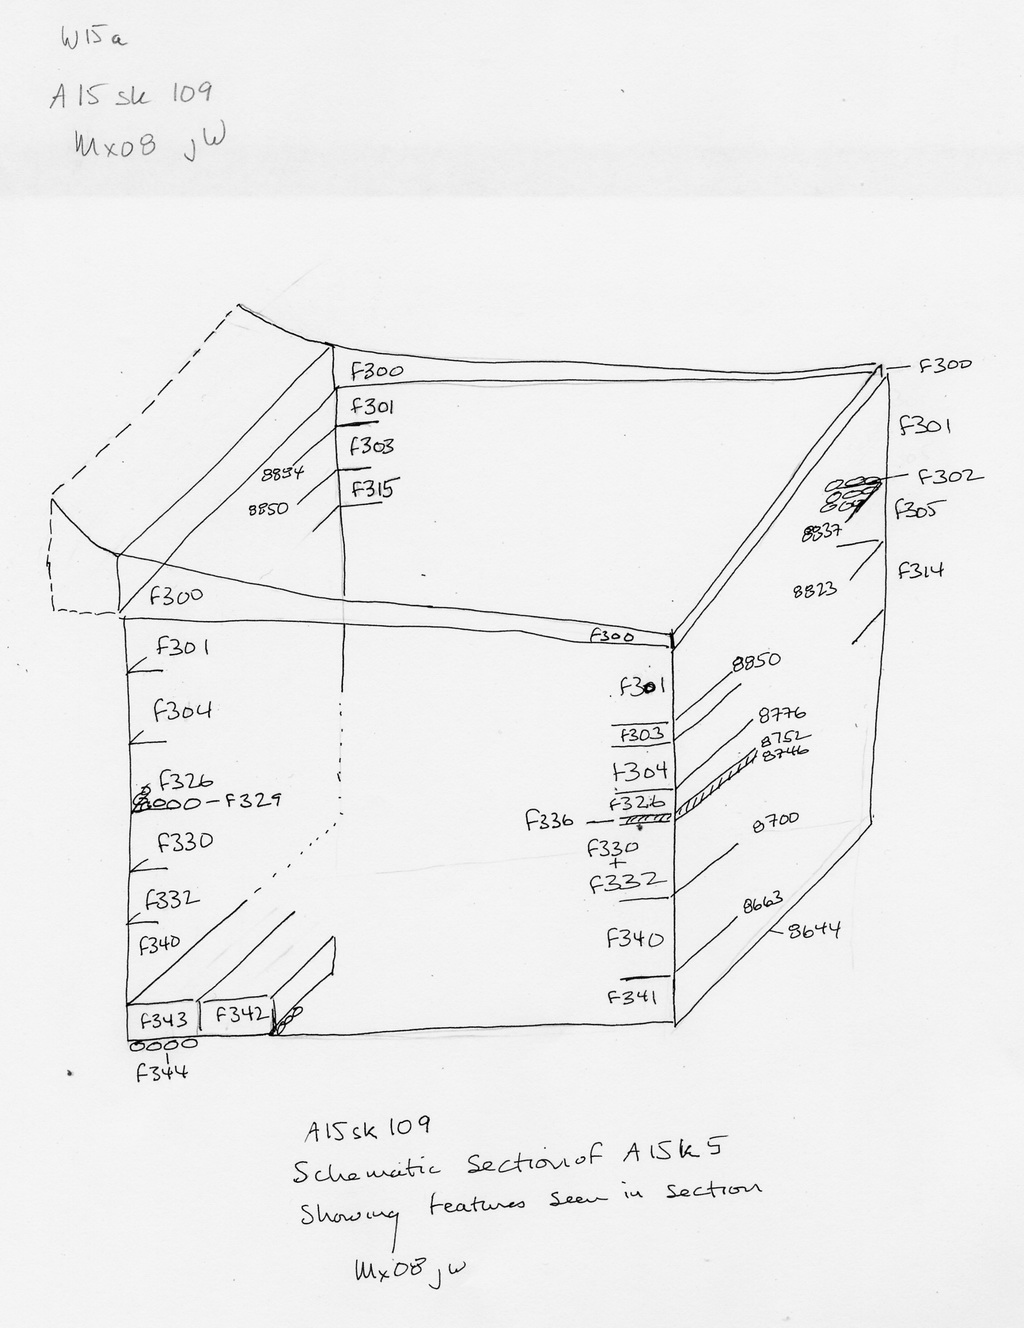 W15a
A15 sk 109
Mx08 jW
F300
F300
F301
F301
F303
8894
F302
F315
8850
F305
8837
F314
8823
F300
F300
F301
8850
F301
F304
8776
F303
8752
8746
F304
F326
F326
F329
F336
8700
F330
F330
+
F332
F332
8663
8644
F340
F340
F341
F343
F342
F344
A15sk109
Schematic Section of A15k5
Showing features seen in section
Mx08 jW